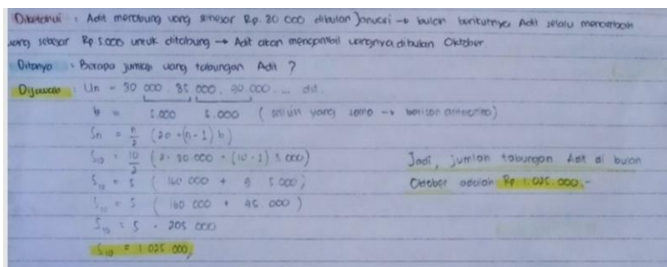 Diketahui : Adit menabung uang sebesar Rp. 80 000 dibulan Januari → bulan berikutnya Adit selalu menambah
uang sebesar Rp 5.000 untuk ditabung → Adit akan mengambil uangnya dibulan Oktober
Ditanya : Berapa jumlah uang tabungan Adit ?
Dijawab : Un = 80 000, 85 000, 90.000, ... dst.
b = 5.000 5.000 ( selisih yang sama → barisan aritmatika)
Sn = n/2 (2a + (n - 1) b)
S10 = 10/2 ( 2 . 80 000 + (10 - 1) 5 000)
S10 = 5 ( 160 000 + 9 5.000 )
S10 = 5 ( 160 000 + 45 000 )
S10 = 5 . 205 000
S10 = 1 025 000,
Jadi, jumlah tabungan Adit di bulan
Oktober adalah Rp 1.025.000,-